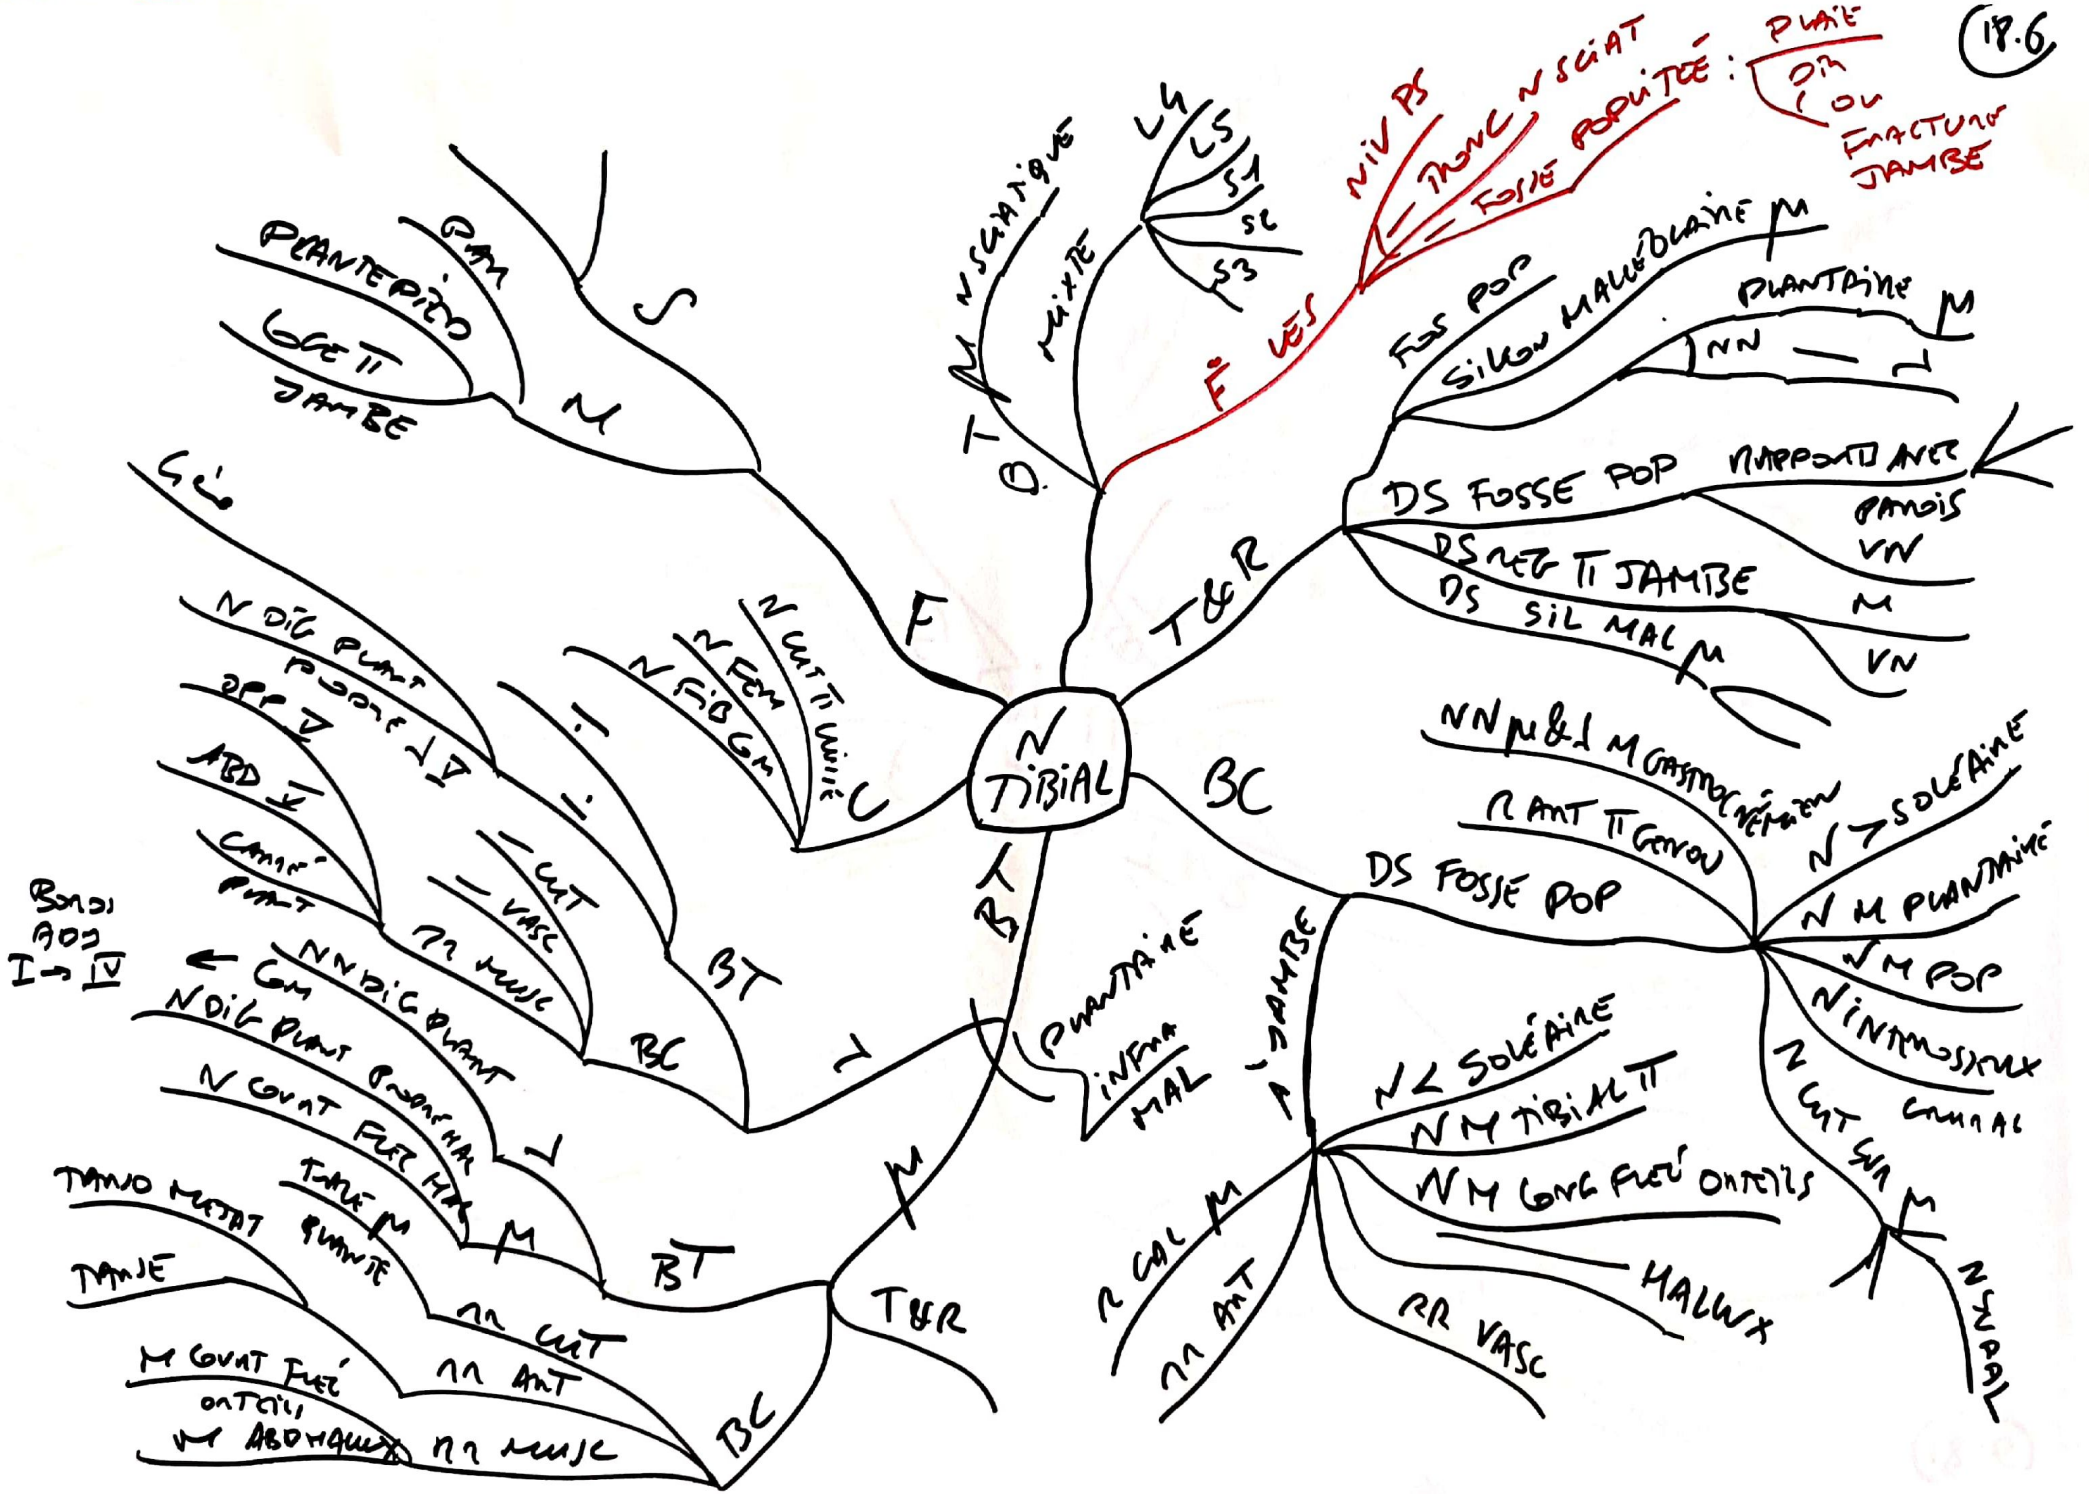 18.6
N
TIBIAL
T M N SCIATIQUE
O.
MIXTE
L4
L5
S1
S2
S3
F LÉS
NIV PS
TRONC N SCIAT
FOSSE POPLITÉE :
PLAIE
DIR
OU
FRACTURE
JAMBE
T & R
FOS POP
SILLON MALLÉOLAIRE M
PLANTAIRE M
NN
DS FOSSE POP
RAPPORTS AVEC
PAROIS
VN
DS REG π JAMBE
M
VN
DS SIL MAL M
BC
DS FOSSE POP
NN M & L M GASTROCNÉMIEN
R ART π GENOU
N > SOLÉAIRE
N M PLANTAIRE
N M POP
N INTEROSSEUX
CRURAL
N CUT SUR M
N SURAL
À JAMBE
N < SOLÉAIRE
N M TIBIAL π
N M LONG FLÉC ORTEILS
HALLUX
RR VASC
RR ART
R CAL M
B
PLANTAIRE
INFRA
MAL
M
T&R
BC
RR CUT
TALE M
PLANTE
RR ART
TARSO METAT
TARSE
RR MUSC
M COURT FLÉC
ORTEILS
M ABD HALLUX
BT
M
N COURT FLEC HAL
N DIG PLANT PROPRE HAL
NN DIG PLANT
COM
BORDS
ADJ
I → IV
BC
RR MUSC
OPP V
ABD V
CARRÉ
PLANT
CUT
VASC
BT
N DIG PLANT
PROPRE V
C
N FIB COM
N FEM
N CUT π CUISSE
F
M
PLANTE PIED
LOGE π
JAMBE
S